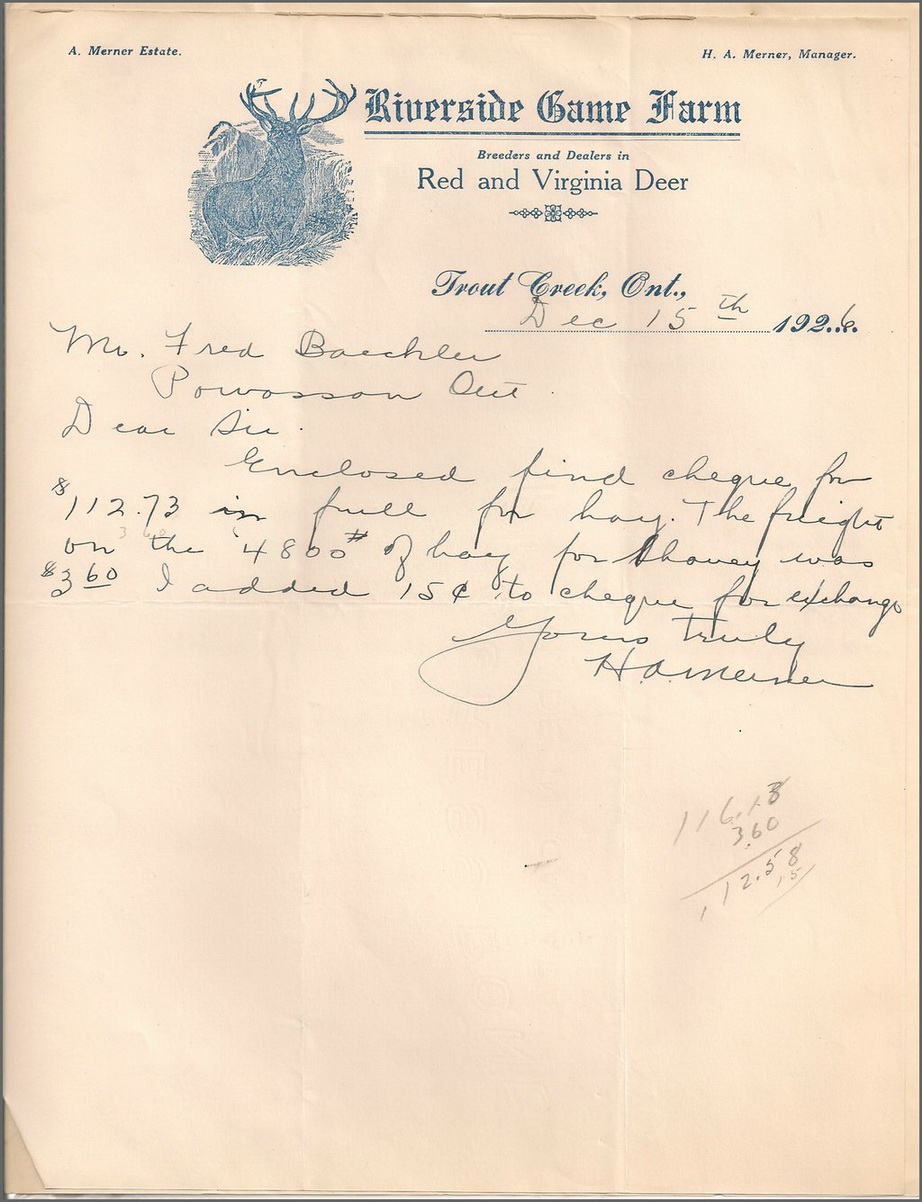 A. Merner Estate.
H. A. Merner, Manager.
Riverside Game Farm
Breeders and Dealers in
Red and Virginia Deer
Trout Creek, Ont.,
Dec 15th 1926.
Mr. Fred Baechler
Powassan Ont.
Dear Sir.
Enclosed find cheque for
$112.73 in full for hay. The freight
on the 4800# of hay for was
$3.60 I added 15¢ to cheque for exchange
Yours truly
H.A. Merner
116.18
3.60
112.58
15